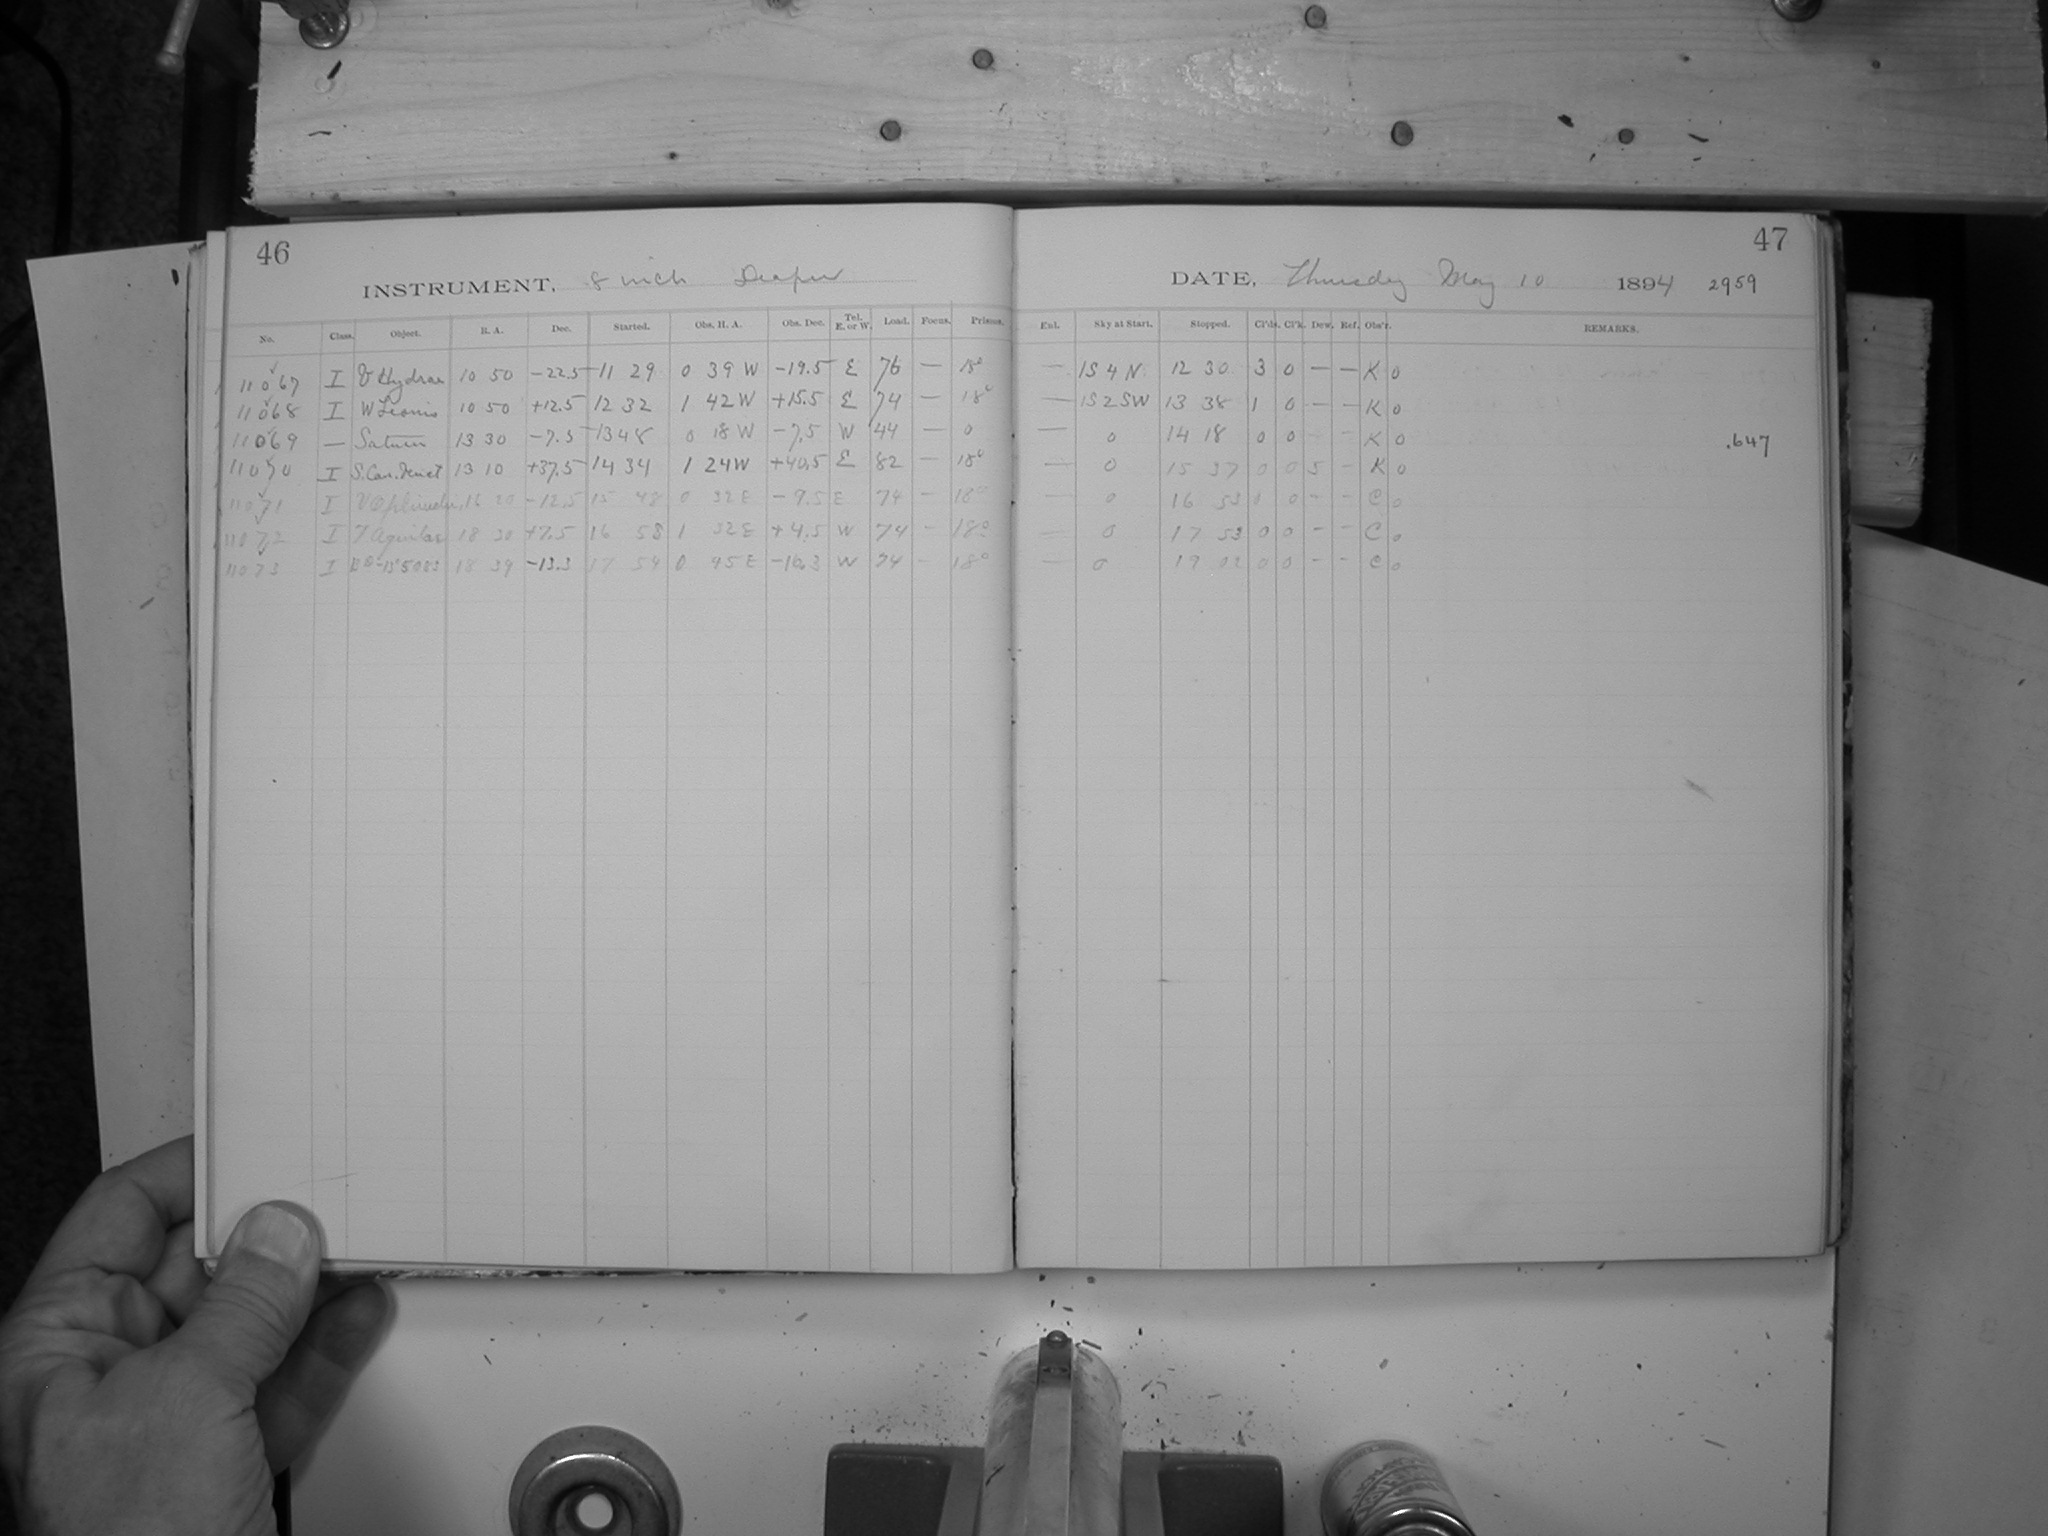 46
INSTRUMENT, 8 inch Draper
No. Class. Object. R. A. Dec. Started. Obs. R. A. Obs. Dec. Tel. E. or W. Load. Focus. Prisms.
11067 I V Hydrae 10 50 -22.5 11 29 0 39 W -19.5 E 76 — 18°
11068 I W Leonis 10 50 +12.5 12 32 1 42 W +15.5 E 74 — 18°
11069 — Saturn 13 30 -7.5 13 48 0 18 W -7.5 W 44 — 0
11070 I S. Can. Venat 13 10 +37.5 14 34 1 24 W +40.5 E 82 — 18°
11071 I V Ophiuchi 16 20 -12.5 15 48 0 32 E -9.5 E 74 - 18°
11072 I T Aquilae 18 30 +7.5 16 58 1 32 E +4.5 W 74 - 18°
11073 I 18 39 -13.3 17 54 0 45 E -16.3 W 74 - 18°
47
DATE, Thursday May 10 1894 2959
Enl. Sky at Start. Stopped. Cl'ds. Cl'k. Dew. Ref. Obs'r. REMARKS.
— 1S 4 N. 12 30 3 0 — — K 0
— 1S 2 SW 13 38 1 0 - - K 0
— 0 14 18 0 0 - - K 0 .647
— 0 15 37 0 0 5 - K 0
— 0 16 53 0 - - C 0
— 0 17 53 0 0 - - C 0
— 0 19 02 0 0 - - C 0